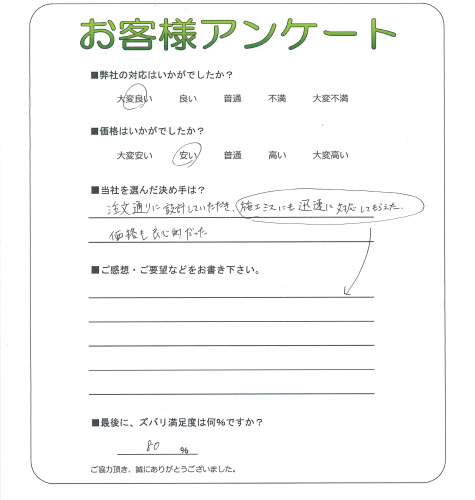 お客様アンケート
■弊社の対応はいかがでしたか？
大変良い　良い　普通　不満　大変不満
■価格はいかがでしたか？
大変安い　安い　普通　高い　大変高い
■当社を選んだ決め手は？
注文通りに設計していただき、施工ミスにも迅速に対応してもらえた。
価格も良心的だった
■ご感想・ご要望などをお書き下さい。
■最後に、ズバリ満足度は何%ですか？
80 %
ご協力頂き、誠にありがとうございました。